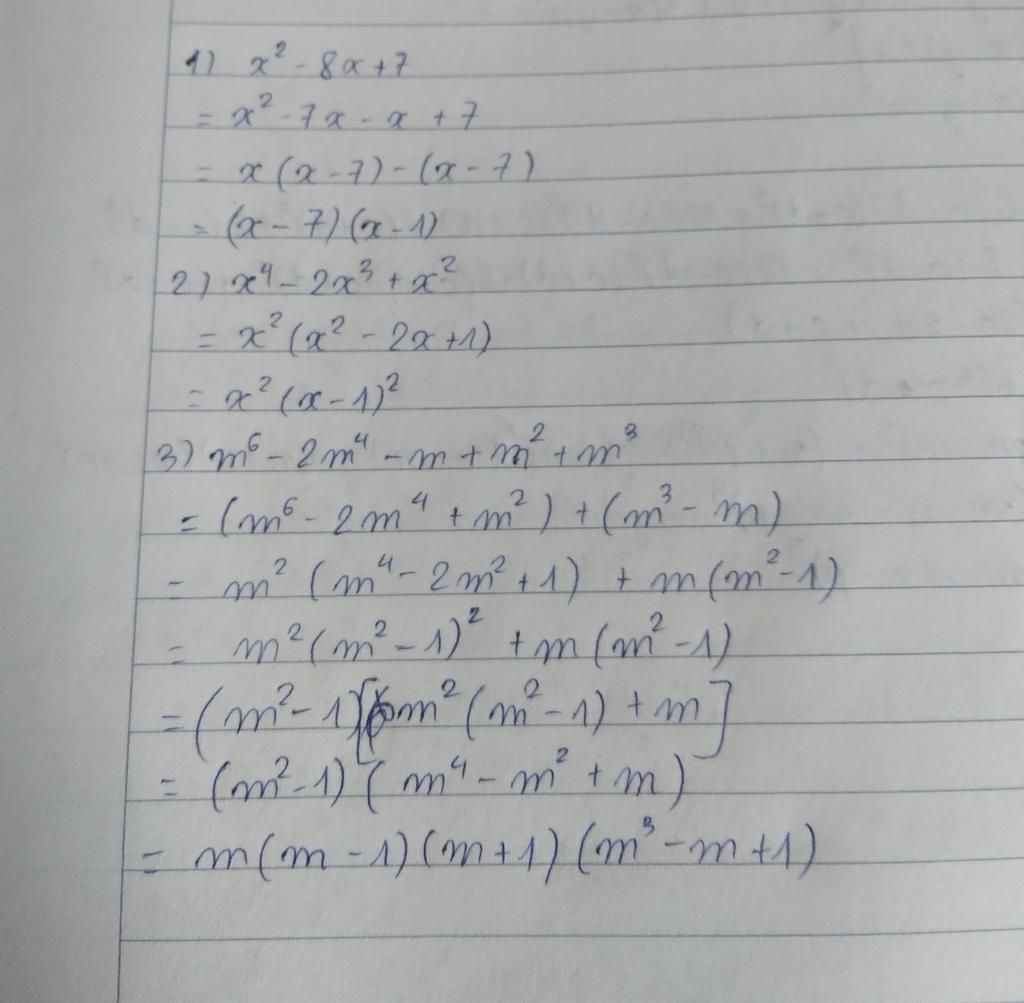 1) x² - 8x + 7
= x² - 7x - x + 7
= x (x - 7) - (x - 7)
= (x - 7) (x - 1)
2) x⁴ - 2x³ + x²
= x² (x² - 2x + 1)
= x² (x - 1)²
3) m⁶ - 2m⁴ - m + m² + m³
= (m⁶ - 2m⁴ + m²) + (m³ - m)
= m² (m⁴ - 2m² + 1) + m (m² - 1)
= m² (m² - 1)² + m (m² - 1)
= (m² - 1) [m² (m² - 1) + m]
= (m² - 1) (m⁴ - m² + m)
= m (m - 1) (m + 1) (m³ - m + 1)